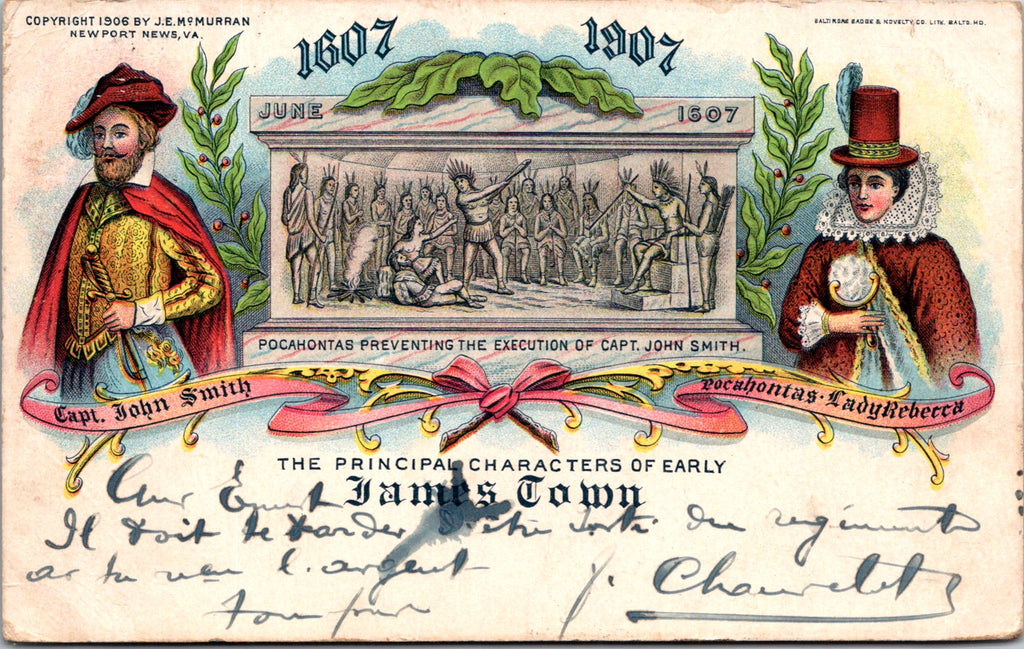 COPYRIGHT 1906 BY J.E. McMURRAN
NEWPORT NEWS, VA.
BALTIMORE BADGE & NOVELTY CO. LITH. BALTO. MD.
1607 1907
JUNE 1607
POCAHONTAS PREVENTING THE EXECUTION OF CAPT. JOHN SMITH.
Capt. John Smith
Pocahontas · Lady Rebecca
THE PRINCIPAL CHARACTERS OF EARLY
James Town
Il doit te tarder d'être du regiment
as tu l'argent
J.